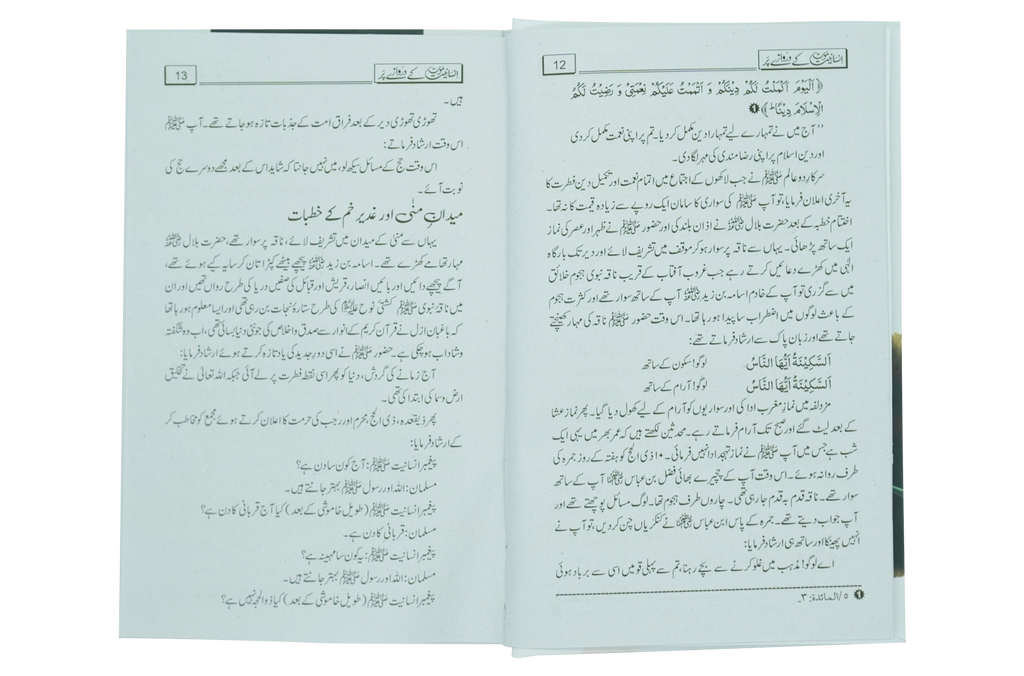 انسانیت موت کے دروازے پر
12
﴿اَلْیَوْمَ اَکْمَلْتُ لَکُمْ دِیْنَکُمْ وَ اَتْمَمْتُ عَلَیْکُمْ نِعْمَتِیْ وَ رَضِیْتُ لَکُمُ
الْاِسْلَامَ دِیْنًا ط﴾ ❶
’’آج میں نے تمہارے لیے تمہارا دین مکمل کر دیا۔ تم پر اپنی نعمت مکمل کر دی
اور دین اسلام پر اپنی رضامندی کی مہر لگا دی۔
سرکارِ دو عالم ﷺ نے جب لاکھوں کے اجتماع میں اتمام نعمت اور تکمیل دین فطرت کا
یہ آخری اعلان فرمایا، تو آپ ﷺ کی سواری کا سامان ایک روپے سے زیادہ قیمت کا نہ تھا۔
اختتام خطبہ کے بعد حضرت بلال رضی اللہ عنہ نے اذان بلند کی اور حضور ﷺ نے ظہر اور عصر کی نماز
ایک ساتھ پڑھائی۔ یہاں سے ناقہ پر سوار ہو کر موقف میں تشریف لائے اور دیر تک بارگاہ
الٰہی میں کھڑے دعائیں کرتے رہے جب غروب آفتاب کے قریب ناقہ نبوی ہجوم خلائق
میں سے گزری تو آپ کے خادم اسامہ بن زید رضی اللہ عنہ آپ کے ساتھ سوار تھے اور کثرت ہجوم
کے باعث لوگوں میں اضطراب سا پیدا ہو رہا تھا۔ اس وقت حضور ﷺ ناقہ کی مہار کھینچتے
جاتے تھے اور زبان پاک سے ارشاد فرماتے تھے:
اَلسَّکِیْنَۃُ اَیُّھَا النَّاسُ لوگو! سکون کے ساتھ
اَلسَّکِیْنَۃُ اَیُّھَا النَّاسُ لوگو! آرام کے ساتھ
مزدلفہ میں نماز مغرب ادا کی اور سواریوں کو آرام کے لیے کھول دیا گیا۔ پھر نماز عشا
کے بعد لیٹ گئے اور صبح تک آرام فرماتے رہے۔ محدثین لکھتے ہیں کہ عمر بھر میں یہی ایک
شب ہے جس میں آپ ﷺ نے نماز تہجد ادا نہیں فرمائی۔ ۱۰ ذی الحج کو ہفتہ کے روز جمرہ کی
طرف روانہ ہوئے۔ اس وقت آپ کے چچیرے بھائی فضل بن عباس رضی اللہ عنہما آپ کے ساتھ
سوار تھے۔ ناقہ قدم بہ قدم جا رہی تھی۔ چاروں طرف ہجوم تھا۔ لوگ مسائل پوچھتے تھے اور
آپ جواب دیتے تھے۔ جمرہ کے پاس ابن عباس رضی اللہ عنہما نے کنکریاں چن کر دیں، تو آپ نے
انہیں پھینکا اور ساتھ ہی ارشاد فرمایا:
اے لوگو! مذہب میں غلو کرنے سے بچے رہنا، تم سے پہلی قومیں اسی سے برباد ہوئی
❶ ۵/المائدۃ: ۳۔
انسانیت موت کے دروازے پر
13
ہیں۔
تھوڑی تھوڑی دیر کے بعد فراق امت کے جذبات تازہ ہو جاتے تھے۔ آپ ﷺ
اس وقت ارشاد فرماتے:
اس وقت حج کے مسائل سیکھ لو، میں نہیں جانتا کہ شاید اس کے بعد مجھے دوسرے حج کی
نوبت آئے۔
میدانِ منٰی اور غدیر خم کے خطبات
یہاں سے منٰی کے میدان میں تشریف لائے، ناقہ پر سوار تھے، حضرت بلال رضی اللہ عنہ
مہار تھامے کھڑے تھے۔ اسامہ بن زید رضی اللہ عنہ پیچھے بیٹھے کپڑا تان کر سایہ کیے ہوئے تھے،
آگے پیچھے دائیں اور بائیں انصار، قریش اور قبائل کی صفیں دریا کی طرح رواں تھیں اور ان
میں ناقۂ نبوی ﷺ کشتیٔ نوح علیہ السلام کی طرح ستارۂ نجات بن رہی تھی اور ایسا معلوم ہو رہا تھا
کہ باغبان ازل نے قرآن کریم کے انوار سے صدق و اخلاص کی جو نئی دنیا بسائی تھی، اب وہ شگفتہ
و شاداب ہو چکی ہے۔ حضور ﷺ نے اسی دور جدید کی یاد تازہ کرتے ہوئے ارشاد فرمایا:
آج زمانے کی گردش، دنیا کو پھر اسی نقطہ فطرت پر لے آئی جبکہ اللہ تعالیٰ نے تخلیق
ارض و سما کی ابتدا کی تھی۔
پھر ذیقعدہ، ذی الحج، محرم اور رجب کی حرمت کا اعلان کرتے ہوئے مجمع کو مخاطب کر
کے ارشاد فرمایا:
پیغمبر انسانیت ﷺ: آج کون سا دن ہے؟
مسلمان: اللہ اور رسول ﷺ بہتر جانتے ہیں۔
پیغمبر انسانیت ﷺ (طویل خاموشی کے بعد) کیا آج قربانی کا دن ہے؟
مسلمان: قربانی کا دن ہے۔
پیغمبر انسانیت ﷺ: یہ کون سا مہینہ ہے؟
مسلمان: اللہ اور رسول ﷺ بہتر جانتے ہیں۔
پیغمبر انسانیت ﷺ (طویل خاموشی کے بعد) کیا ذوالحجہ نہیں ہے؟